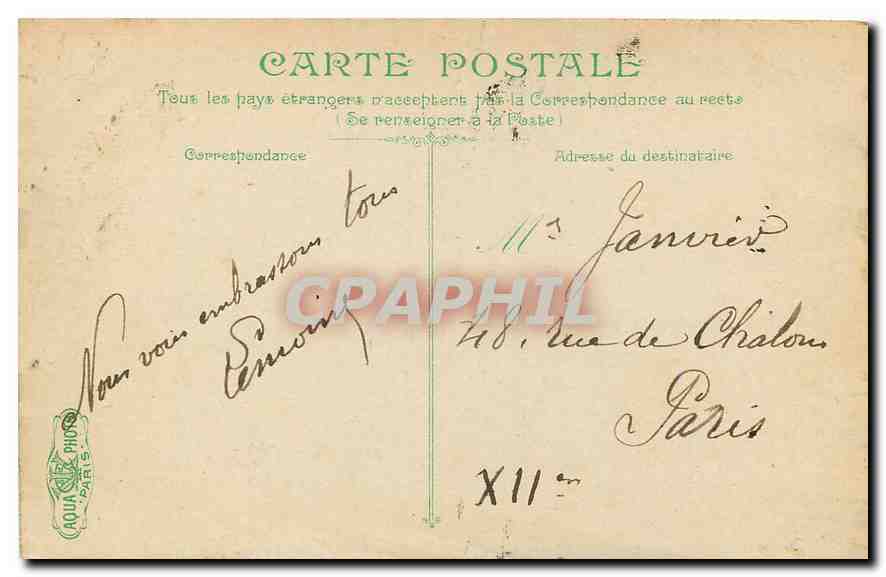 CARTE POSTALE
Tous les pays étrangers n'acceptent pas la Correspondance au recto
(Se renseigner à la Poste)
Correspondance
Adresse du destinataire
Nous vous embrassons tous
Lemoine
Mrs Janvier
48, rue de Chalons
Paris
XIIem
CPAPHIL
AQUA PHOTO
PARIS